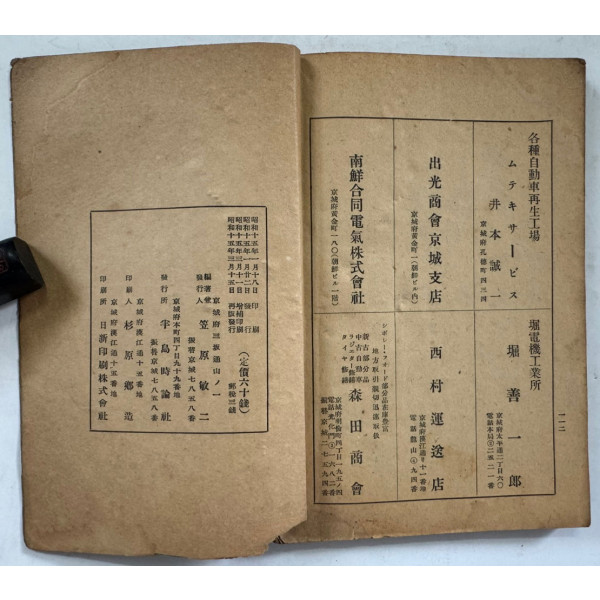 各種自動車再生工場
ムテキサービス
井本誠一
京城府孔德町四三四
出光商會京城支店
京城府黃金町一(朝鮮ビル内)
南鮮合同電氣株式會社
京城府黃金町一八〇(朝鮮ビル一階)
堀電機工業所
堀善一郎
京城府太平通二丁目六〇
西村運送店
京城府漢江通リ十一番地
電話龍山④九四番
シボレー・フオード部分品在庫豊富
地方取引親切迅速取扱
新古部分品
中古自動車
ラヂエター修繕
タイヤ修繕
森田商會
京城府明倫町四丁目一九五ノ四
振替京城二七五九四番
一一二
昭和十五年一月十八日 印刷
昭和十五年一月廿二日 發行
昭和十五年三月十一日 增補印刷
昭和十五年三月十五日 再版發行
(定價六十錢)
郵稅三錢
京城府三坂通山ノ一
編著兼發行人 笠原敏二
振替京城七八五八番
京城府本町四丁目九十九番地
發行所 半島時論社
振替京城七八五八番
京城府漢江通十五番地
印刷人 杉原鄕造
京城府漢江通十五番地
印刷所 日新印刷株式會社